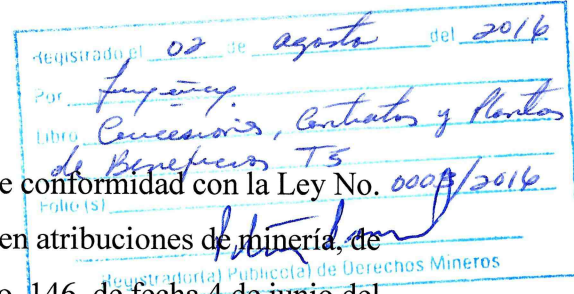 Registrado el 02 de agosto del 2016
Por
Libro Concesiones, Contratos y Plantas
de Beneficios T5
e conformidad con la Ley No.
Folio (s) /2016
en atribuciones de minería, de
Registrador(a) Publico(a) de Derechos Mineros
o. 146, de fecha 4 de junio del